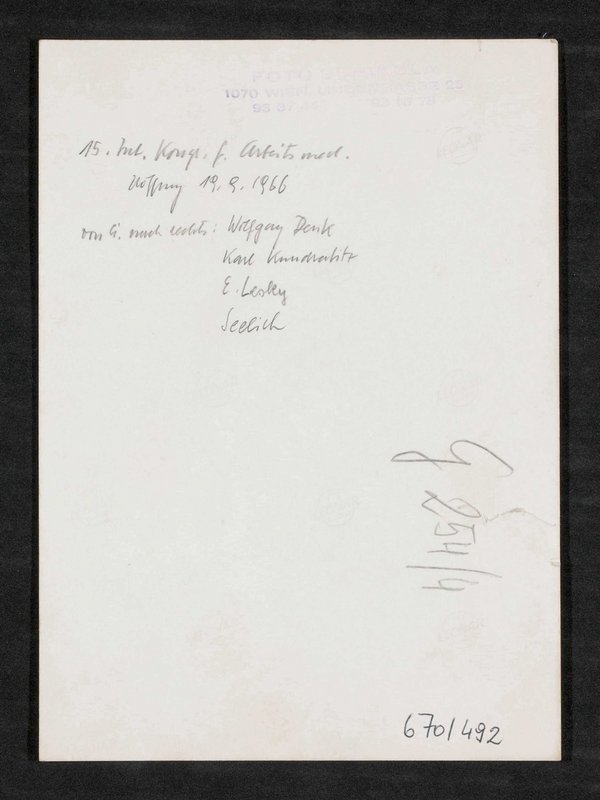 FOTO
1070 WIEN, LINDENGASSE 25
93 93 10 78
15. Int. Kongr. f. Arbeitsmed.
Hofburg 19. 9. 1966
von li. nach rechts: Wolfgang Denk
Karl Kundratitz
E. Lesky
Seelich
G 254/4
670/492